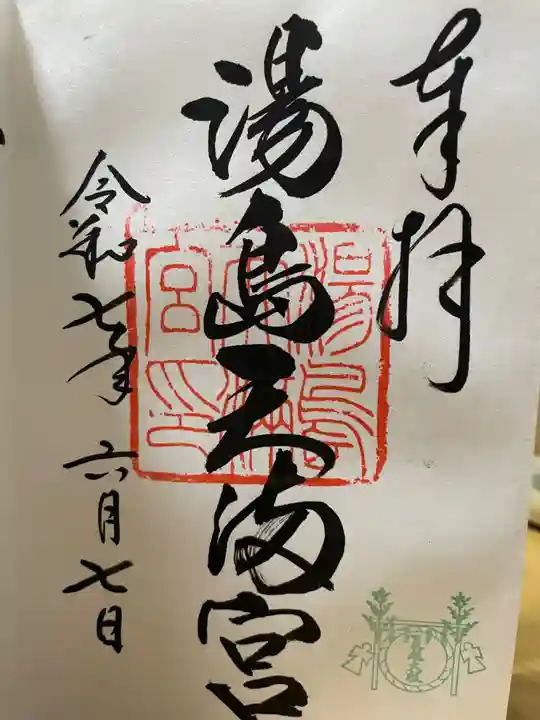 奉拝
湯島天満宮
令和七年六月七日
湯島天満宮印